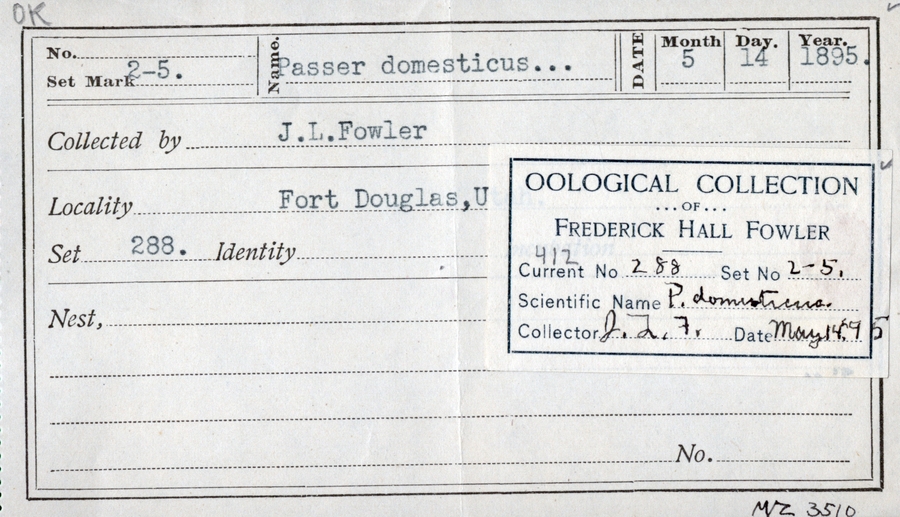 OK
No.
Set Mark 2-5.
Name. Passer domesticus...
DATE
Month Day. Year.
5 14 1895.
Collected by J.L.Fowler
Locality Fort Douglas,U
Set 288. Identity
Nest,
No.
OOLOGICAL COLLECTION
...OF...
FREDERICK HALL FOWLER
412
Current No 288 Set No 2-5.
Scientific Name P. domesticus.
Collector J. L. F. Date May 14, 95
MVZ 3510